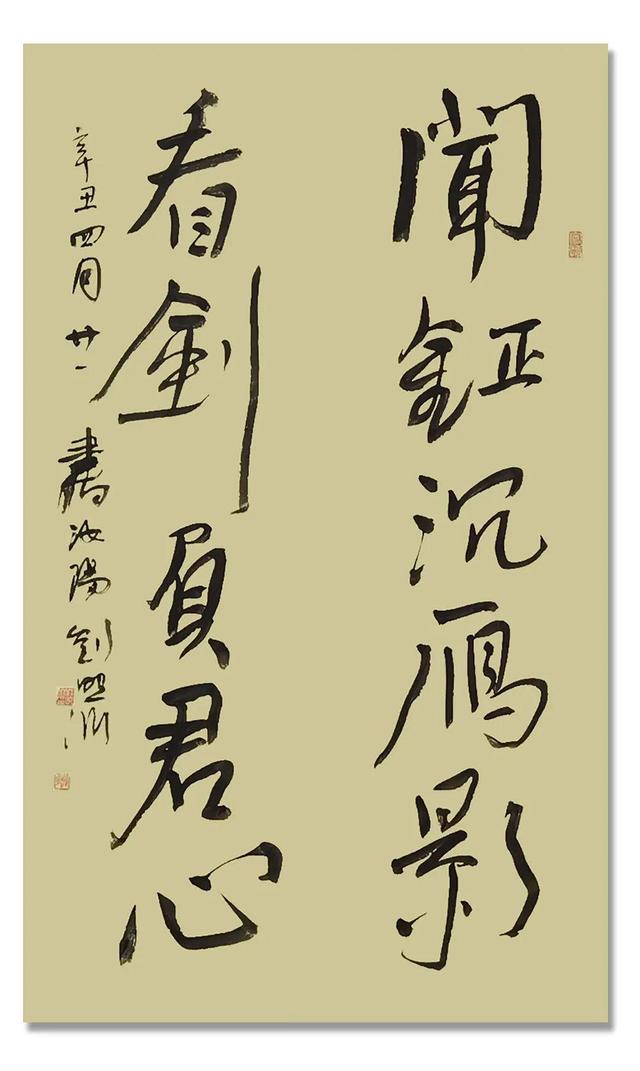 聞鉦沉鴈影
看劍負君心
辛丑四月廿一書汝陽劉